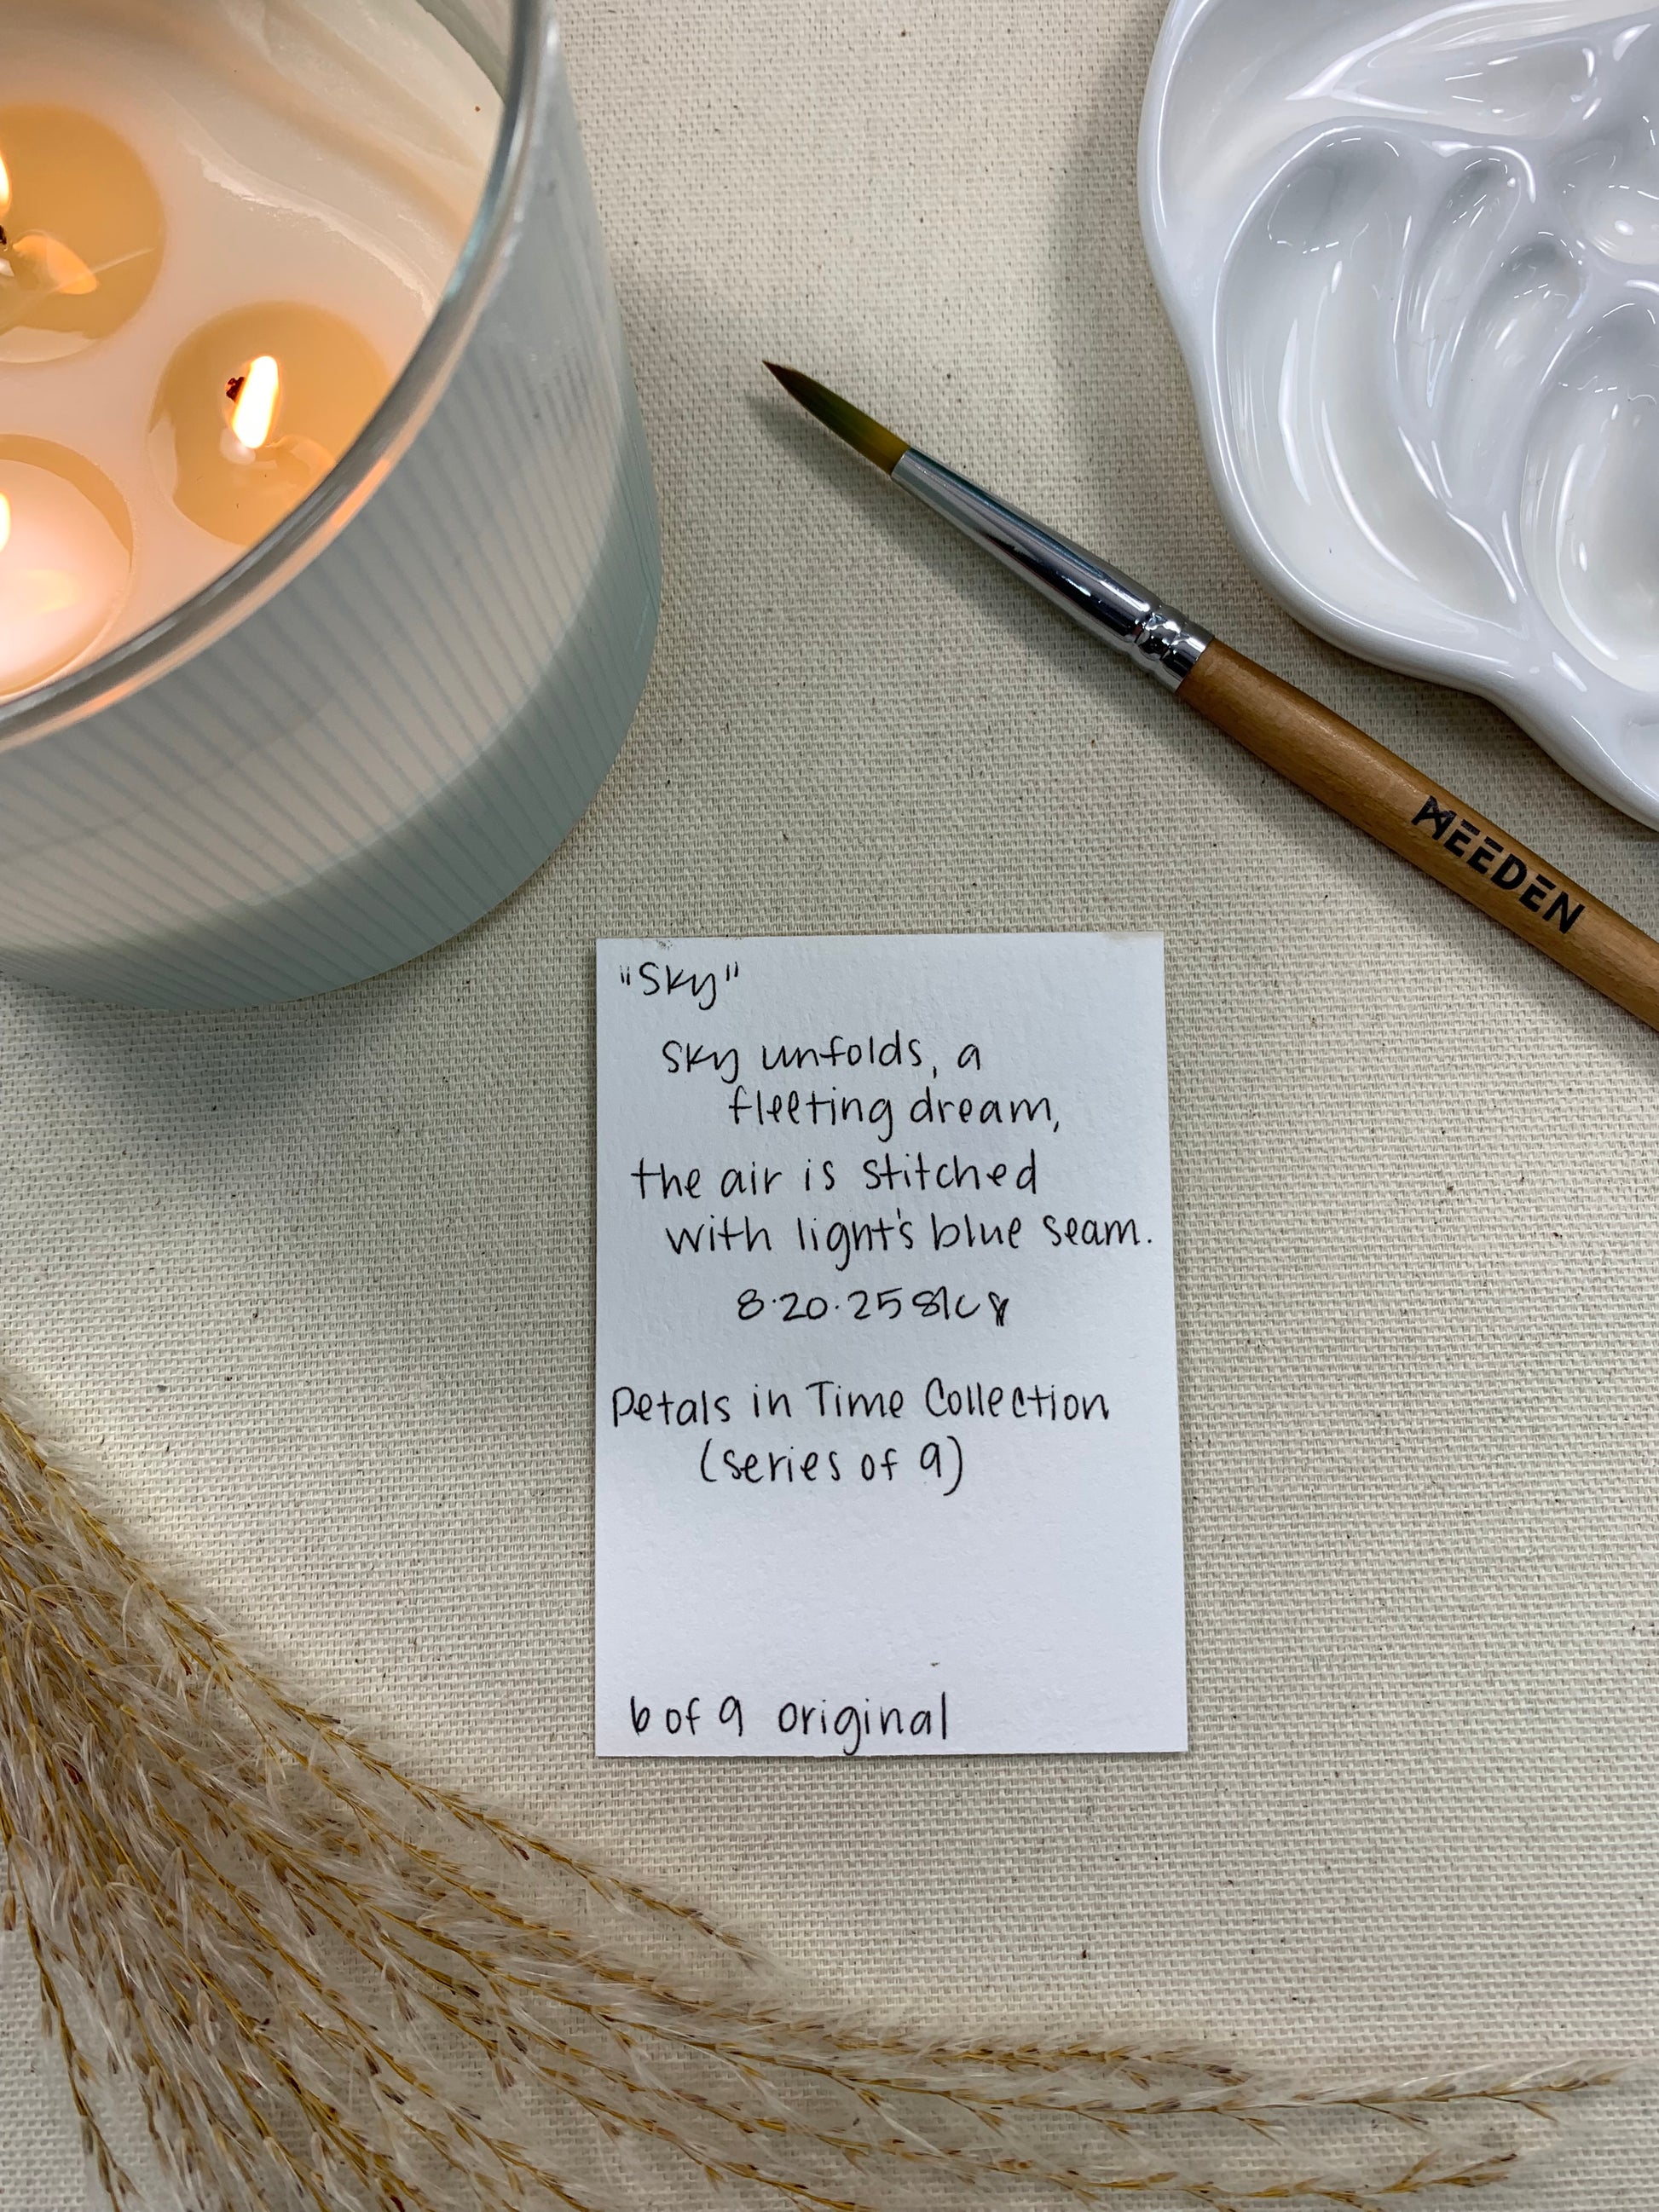 MEEDEN
"Sky"
Sky unfolds, a
fleeting dream,
the air is stitched
with light's blue seam.
8·20·25
Petals in Time Collection
(series of 9)
6 of 9 original